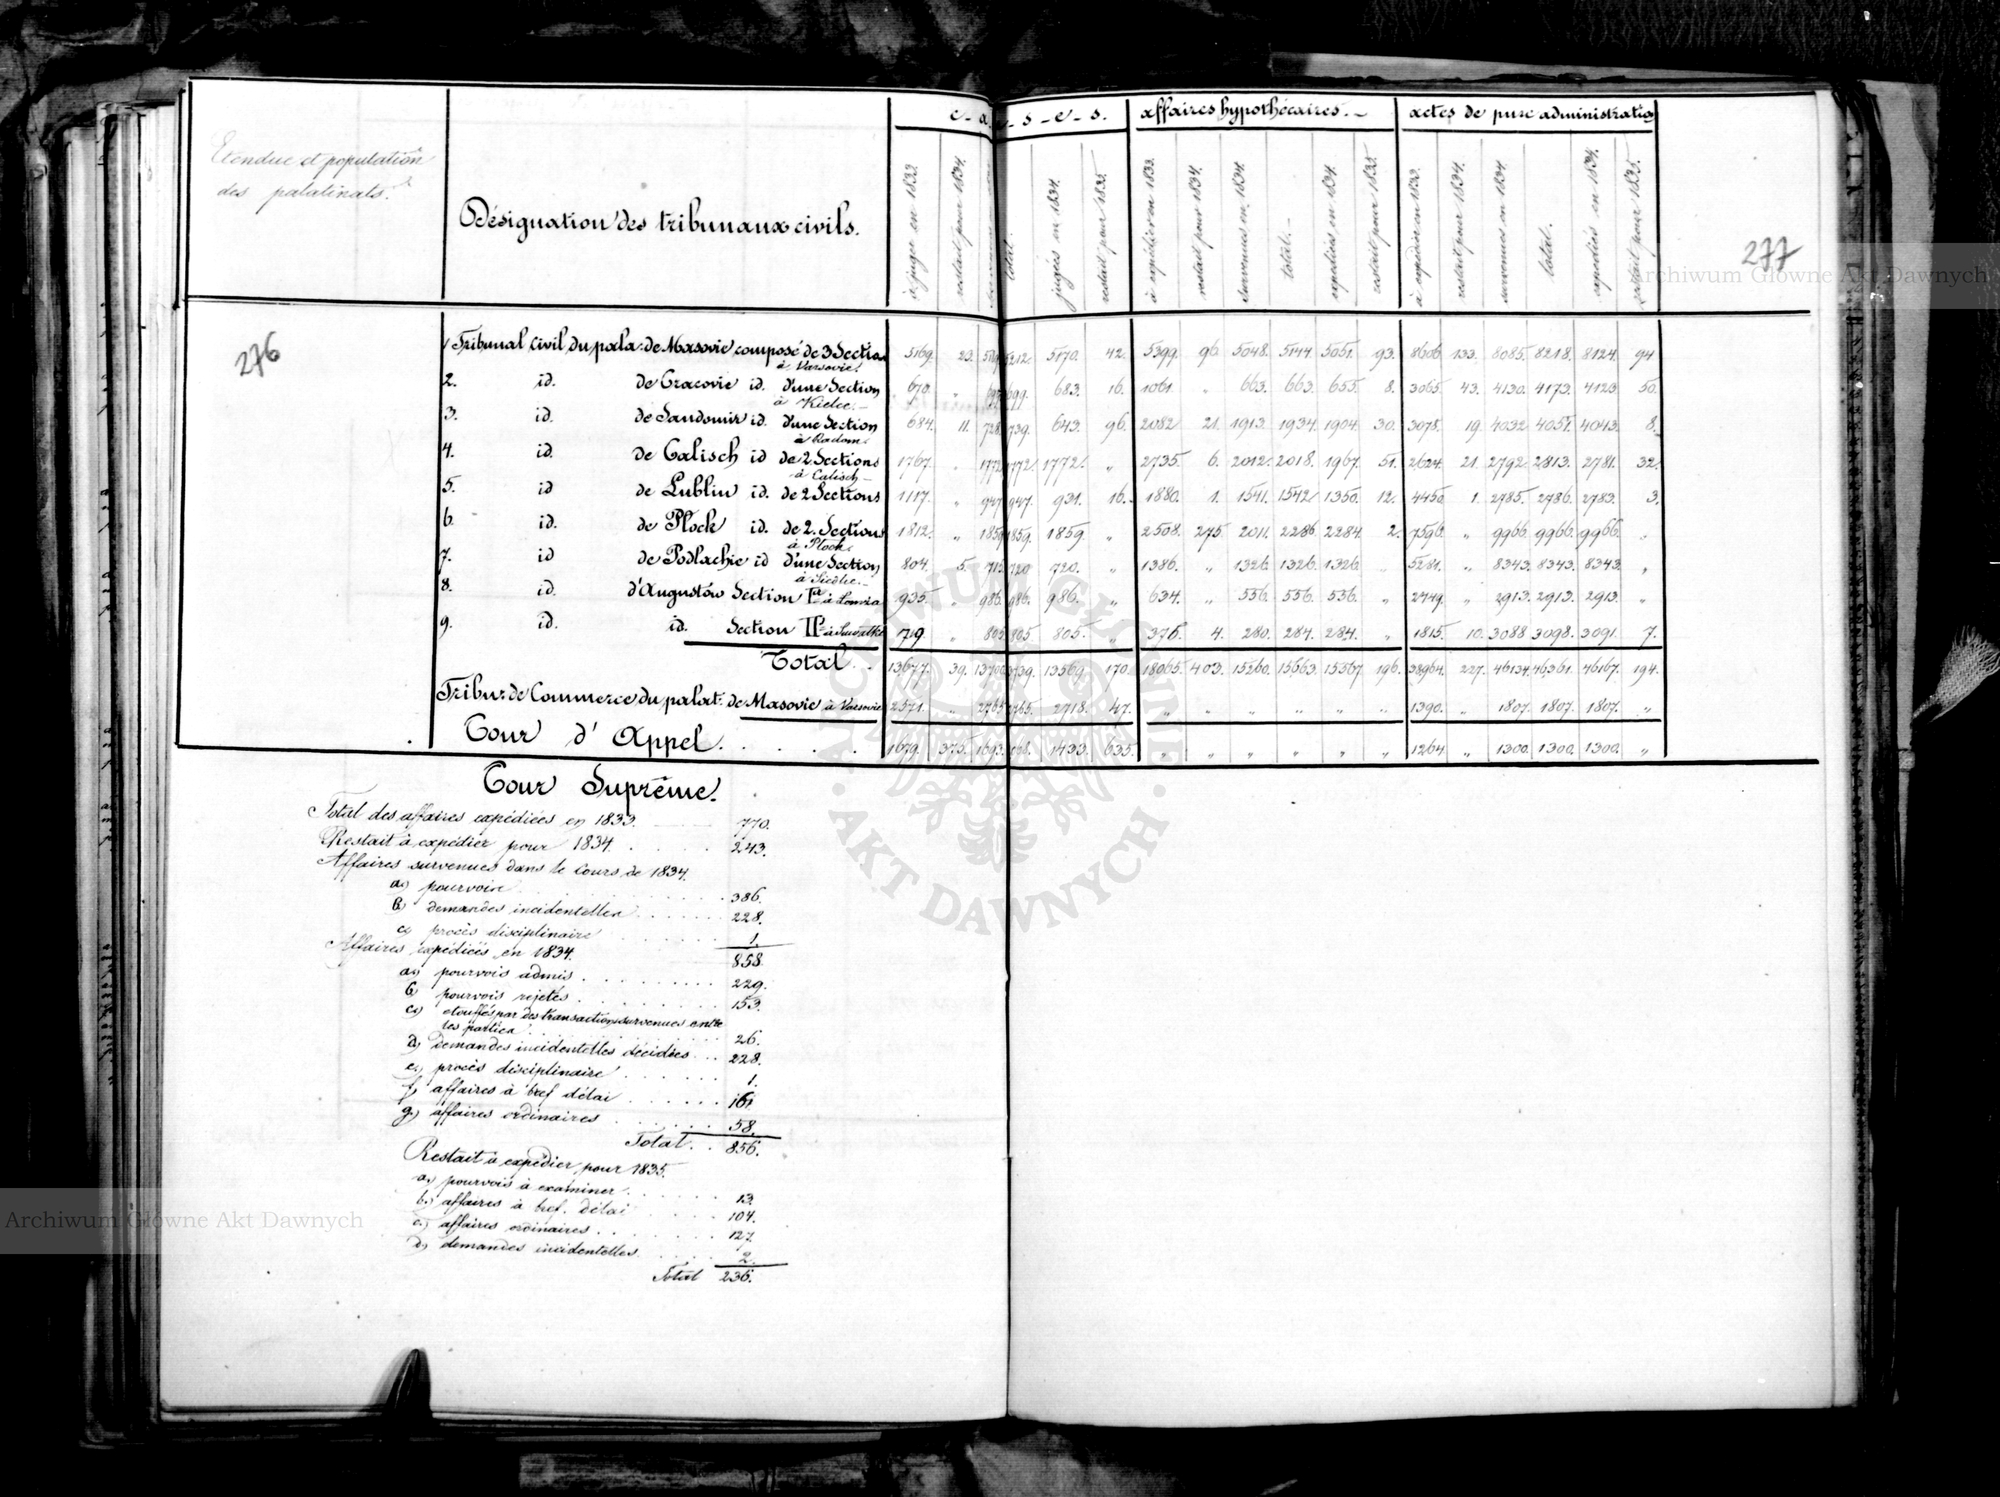 c-a-u-s-e-s. affaires hypothécaires. actes de pure administration
Etendue et population
des palatinats.
Désignation des tribunaux civils.
à juger en 1833. restait pour 1834. total. jugés en 1834. restait pour 1835. à expédier en 1833. restait pour 1834. survenues en 1834. total. expédiées en 1834. restait pour 1835. à expédier en 1833. restait pour 1834. survenues en 1834. total. expédiés en 1834. restait pour 1835.
277
276
1 Tribunal Civil du pala: de Masovie composé de 3 Section 5169. 23. 5189. 5212. 5170. 42. 5399. 96. 5048. 5144. 5051. 93. 8606. 133. 8085. 8218. 8124. 94
à Varsovie.
2. id. de Cracovie id. d'une Section 670. „ 699. 683. 16. 1061. „ 663. 663. 655. 8. 3065. 43. 4130. 4173. 4123. 50.
à Kielce.
3. id. de Sandomir id. d'une Section 684. 11. 728. 739. 643. 96. 2082. 21. 1913. 1934. 1904. 30. 3078. 19. 4032. 4051. 4043. 8.
à Radom.
4. id. de Calisch id de 2 Sections 1767. „ 1772. 1772. 1772. „ 2735. 6. 2012. 2018. 1967. 51. 2624. 21. 2792. 2813. 2781. 32.
à Calisch
5. id de Lublin id. de 2 Sections 1117. „ 947. 947. 931. 16. 1880. 1. 1541. 1542. 12. 4450. 1. 2785. 2786. 2783. 3.
6. id. de Plock id. de 2. Sections 1812. „ 1859. 1859. 1859. „ 2508. 275. 2011. 2286. 2284. 2. 7596. „ 9966. 9966. 9966. „
à Plock
7. id de Podlachie id d'une Section 804. 5. 715. 720. 720. „ 1386. „ 1326. 1326. 1326. „ 5281. „ 8343. 8343. 8343. „
à Siedlce.
8. id. d'Augustów Section I à Lomza 935. „ 986. 986. 986. „ 634. „ 556. 556. 556. „ 2449. „ 2913. 2913. 2913. „
9. id. id. Section II à Suwalki 719. „ 805. 805. 805. „ 376. 4. 280. 284. 284. „ 1815. 10. 3088. 3098. 3091. 7.
Total 13677. 39. 13700. 13739. 13569. 170. 18065. 403. 15260. 15663. 15367. 196. 38964. 227. 46134. 46361. 46167. 194.
Tribun: de Commerce du palat: de Masovie à Varsovie 2571. „ 2765. 2765. 2718. 47. „ „ „ „ „ „ 1390. „ 1807. 1807. 1807. „
Cour d'Appel. 1679. 375. 1693. 1433. 635. „ „ „ „ „ „ 1264. „ 1300. 1300. 1300. „
Cour Suprême.
Total des affaires expédiées en 1833. 770.
Restait à expédier pour 1834. 243.
Affaires survenues dans le cours de 1834.
a) pourvois 386.
b) demandes incidentelles 228.
c) procès disciplinaire 1.
858.
Affaires expédiées en 1834.
a) pourvois admis 229.
b) pourvois rejetés 153.
c) etouffés par des transactions survenues entre
les parties 26.
d) demandes incidentelles décidées 228.
e) procès disciplinaire 1.
f) affaires à bref délai 161
g) affaires ordinaires 58.
Total 856.
Restait à expédier pour 1835.
a) pourvois à examiner 13.
b) affaires à bref. délai 104.
c) affaires ordinaires 127.
d) demandes incidentelles 2.
Total 236.
Archiwum Główne Akt Dawnych
Archiwum Główne Akt Dawnych
ARCHIWUM GŁÓWNE AKT DAWNYCH